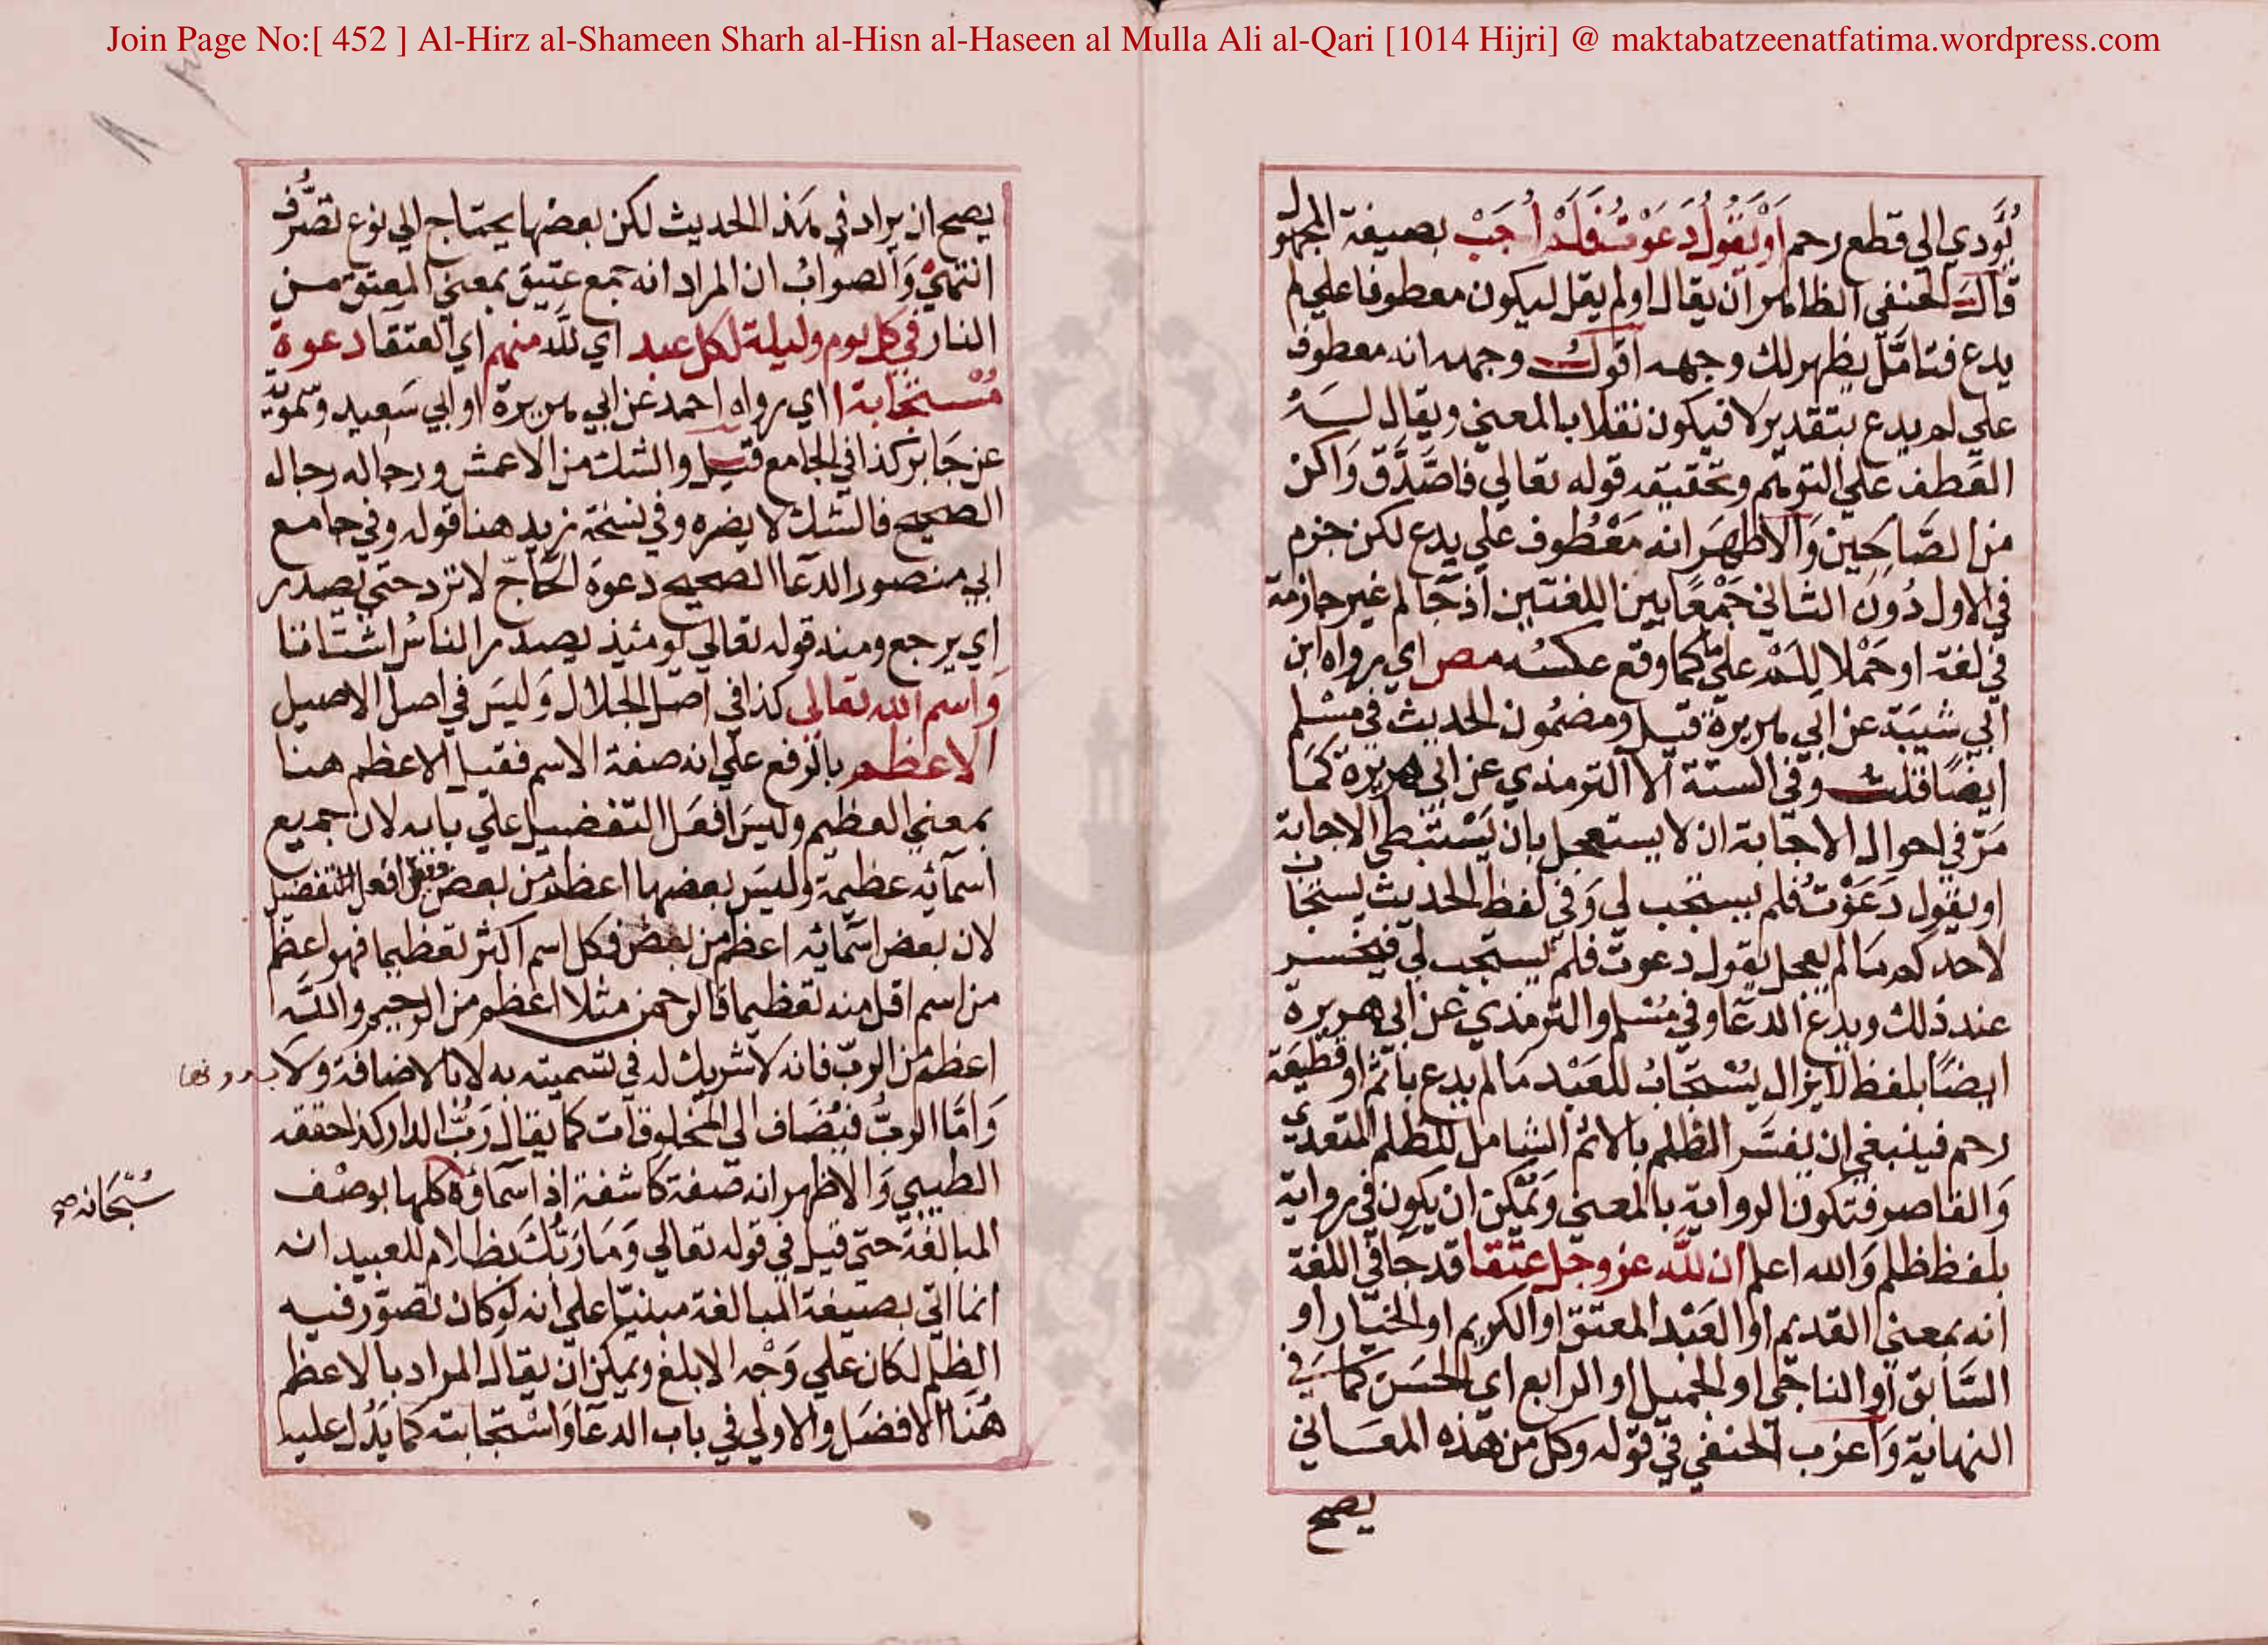 Join Page No:[ 452 ] Al-Hirz al-Shameen Sharh al-Hisn al-Haseen al Mulla Ali al-Qari [1014 Hijri] @ maktabatzeenatfatima.wordpress.com
يُؤدي الي قطع رحم اَوْ يَقُولُ دَعَوْتُ فَلَمْ اُجَبْ بصيغة المجهول
قال الحنفي الظاهر ان يقال او لم يقل ليكون معطوفا علي لم
يدع فتامّل يظهر لك وجهه اقول وجهه انه معطوف
علي لم يدع بتقدير لا فيكون نقلا بالمعني ويقال له
العطف علي التوهم وتحقيقه قوله تعالي فاصَّدَّق وَاكن
من الصَّالحين وَالاظهَر انه مَعْطُوف علي يدع لكن جزم
في الاول دُون الثاني جَمْعًا بين اللغتين اذ جَا لم غير جازمة
في لغة او حَمْلا لِلَمْ علي ما كما وقع عكسُه مص اي رواه ابن
ابي شيبَة عن ابي هريرة قيل ومضمُون الحديث في مسْلم
ايضًا قلت وفي الستة الا الترمذي عن ابي هريرة كمَا
مَرّ في احوال الاجَابة ان لا يستعجل بان يَسْتبطي الاجابة
او يقول دَعَوْتُ فلم يستجب لي وَفي لفظ الحديث يستجاب
لاحدكم مَا لم يعجل يقول دعوت فلم يستجب لي فيخسر
عند ذلك ويدع الدعَا وفي مُسْلم والترمذي عن ابي هريرة
ايضًا بلفظ لا يزال يُسْتجَابُ للعَبْد مَا لم يدع باثم او قطيعَة
رحم فينبغي ان يفسَّر الظلم بالاثم الشامل للظلم المتعدي
وَالقاصر فتكون الرواية بالمعني وَيُمْكن ان يكون في رواية
بلفظ ظلم وَالله اعلم ان للّه عز وجل عتقا قد جَا في اللغة
انه بمعني القديم او العَبْد المعتق او الكريم او الخيار او
السَّابق او الناجي او الجميل او الرابع اي الحسَن كما في
النهاية وَاغرب الحنفي في قوله وكل من هذه المعَاني
يصح
يصح ان يراد في هذا الحديث لكن بعضها يحتاج الي نوع تصَرُّف
انتهي وَالصوابُ ان المراد انه جمع عتيق بمعني المعتق من
النار في كل يوم وليلة لكل عبد اي للّه منهم اي العتقا دعوة
مُسْتجَابة ا اي رواه احمد عن ابي هريرة او ابي سَعيد وسمويَه
عن جَابر كذا في الجامع قيل والشك من الاعمش ورجاله رجال
الصحيح فالشك لا يضره وفي نسخة زيد هنا قوله وفي جامع
ابي منصور الدعا الصحيح دعوة الحَاجّ لا ترد حتي يصدر
اي يرجع ومنه قوله تعالي يومئذ يصدر الناسُ اشتاتا
وَاسم الله تعالي كذا في اصل الجلال وَليسَ في اصل الاصيل
الاعظم بالرفع علي انه صفة الاسم فقيل الاعظم هنا
بمعني العظيم وليسَ افعَل التفضيل علي بابه لان جميع
اسمائه عظيمة وليسَ بعضها اعظم من بعض وقيل افعل التفضيل
لان بعض اسمائه اعظم من بعض فكل اسم اكثر تعظيما فهو اعظم
من اسم اقل منه تعظيما فالرحمن مثلا اعظم من الرحيم واللّه
اعظم من الربّ فانه لا شريك له في تسميته به لا بالاضافة ولا بدونها
وَامّا الربُّ فيُضَاف الي المخلوقات كما يقال رَبُّ الدار كذا حققه
الطيبي وَالاظهر انه صفة كاشفة اذ اسماؤه كلها بوصْف
سُبْحَانه صح
المبالغة حتي قيل في قوله تعالي وَمَا رَبُّكَ بظلام للعبيد انه
انما اتي بصيغة المبالغة مبنيّا علي انه لو كان تصوّر فيه
الظلم لكان علي وَجْه الابلغ ويمكن ان يقال المراد بالاعظم
هُنَا الافضل والاولي في باب الدعَا وَاسْتجَابته كما يَدُل عليه